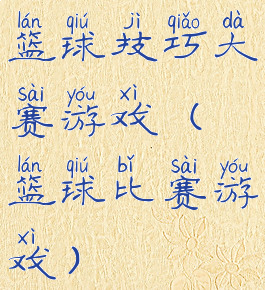 lán qiú jì qiǎo dà
篮球技巧大
sài yóu xì
赛游戏（
lán qiú bǐ sài yóu
篮球比赛游
xì
戏）